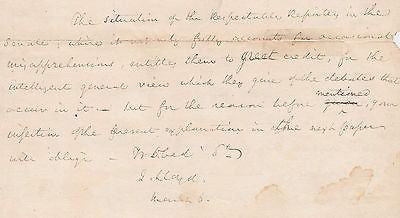 The situation of the Respectable Reporters in the
Senate, where it not only fully accounts for occasional
misapprehensions, entitles them to great credit, for the
intelligent general view which they give of the debates that
occur in it – but for the reason before mentioned given, your
insertion of the present explanation in those newspapers
will oblige –
J. Lloyd.
March 5.